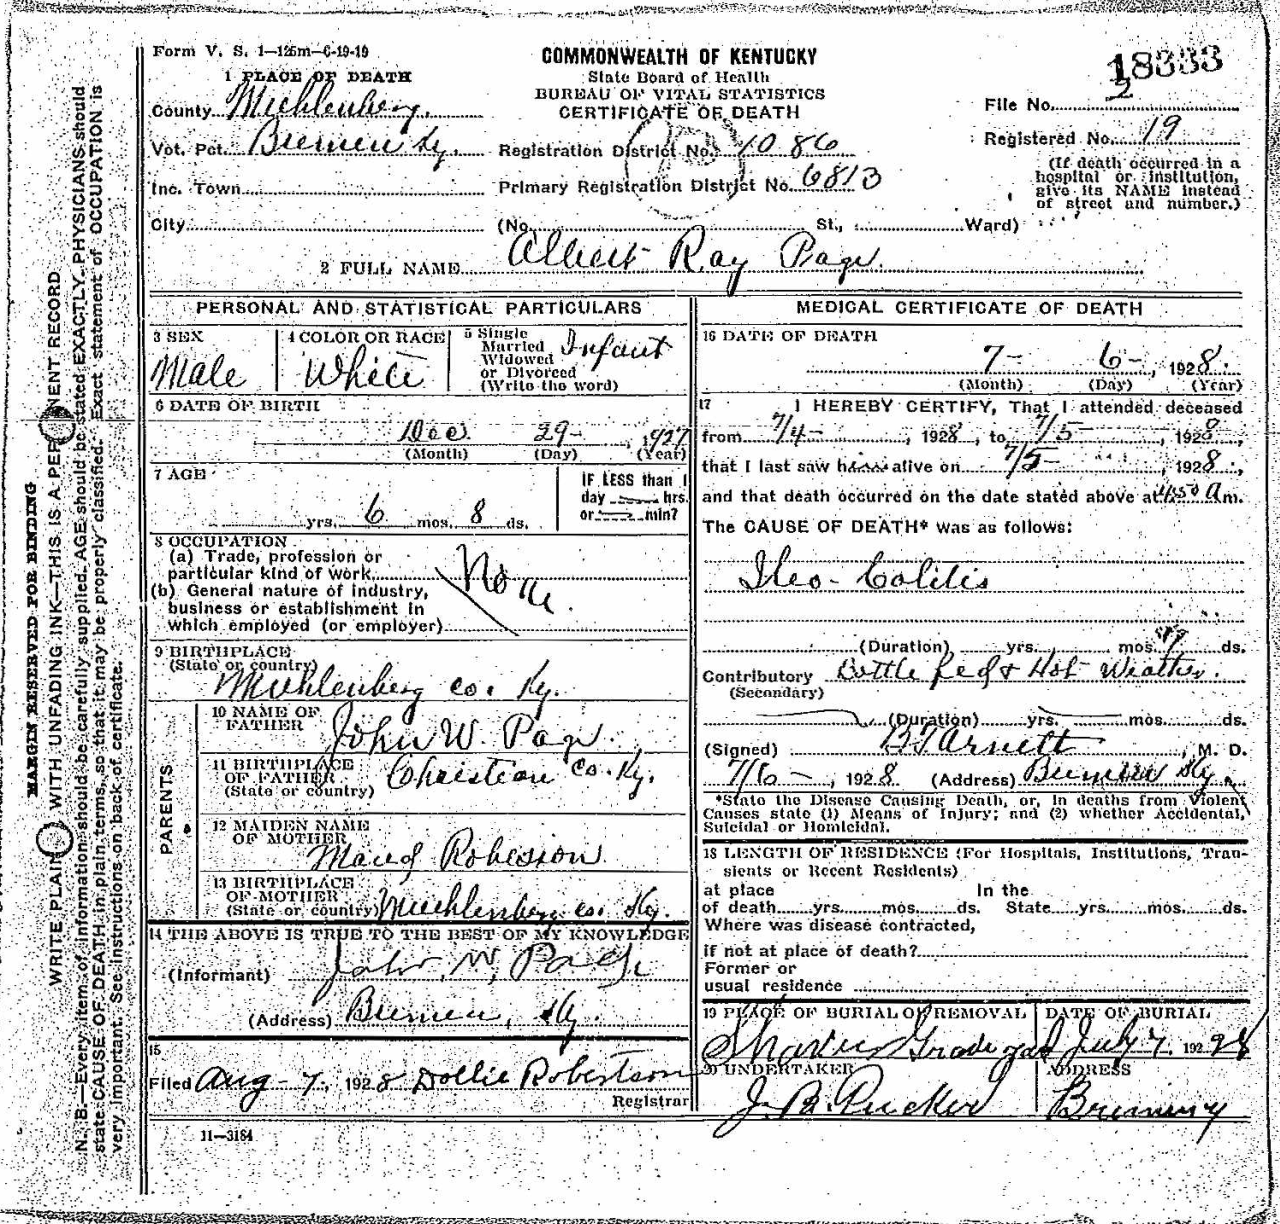 Form V. S. 1—125m—6-19-19
COMMONWEALTH OF KENTUCKY
State Board of Health
BUREAU OF VITAL STATISTICS
CERTIFICATE OF DEATH
18333
File No.
Registered No. 19
(If death occurred in a
hospital or institution,
give its NAME instead
of street and number.)
1 PLACE OF DEATH
County Muhlenberg.
Vot. Pct. Bremen Ky.
Registration District No. 1086
Inc. Town
Primary Registration District No. 6813
City (No. St., Ward)
2 FULL NAME Albert Ray Page
PERSONAL AND STATISTICAL PARTICULARS
3 SEX
Male
4 COLOR OR RACE
White
5 Single
Married
Widowed
or Divorced
(Write the word)
Infant
6 DATE OF BIRTH
Dec. 29- , 1927
(Month) (Day) (Year)
7 AGE
yrs. 6 mos. 8 ds.
IF LESS than 1
day hrs.
or min?
8 OCCUPATION
(a) Trade, profession or
particular kind of work
(b) General nature of industry,
business or establishment in
which employed (or employer)
None.
9 BIRTHPLACE
(State or country)
Muhlenberg co. Ky.
PARENTS
10 NAME OF
FATHER
John W. Page.
11 BIRTHPLACE
OF FATHER
(State or country)
Christian co. Ky.
12 MAIDEN NAME
OF MOTHER
Maud Roberson
13 BIRTHPLACE
OF MOTHER
(State or country)
Muhlenberg co. Ky.
14 THE ABOVE IS TRUE TO THE BEST OF MY KNOWLEDGE
(Informant) John W. Page
(Address) Bremen, Ky.
15
Filed Aug - 7, 1928 Dollie Robertson
Registrar
11—3184
MEDICAL CERTIFICATE OF DEATH
16 DATE OF DEATH
7- 6-, 1928.
(Month) (Day) (Year)
17 I HEREBY CERTIFY, That I attended deceased
from 7/4- , 1928, to 7/5- , 1928,
that I last saw him alive on 7/5- , 1928.,
and that death occurred on the date stated above at 4:50 a m.
The CAUSE OF DEATH* was as follows:
Ileo-Colitis
(Duration) yrs. mos. ds.
Contributory Bottle fed & Hot Weather.
(Secondary)
(Duration) yrs. mos. ds.
(Signed) B T Arnett , M. D.
7/6- , 1928 (Address) Bremen Ky
*State the Disease Causing Death, or, in deaths from Violent
Causes state (1) Means of Injury; and (2) whether Accidental,
Suicidal or Homicidal.
18 LENGTH OF RESIDENCE (For Hospitals, Institutions, Tran-
sients or Recent Residents)
at place In the
of death yrs. mos. ds. State yrs. mos. ds.
Where was disease contracted,
if not at place of death?
Former or
usual residence
19 PLACE OF BURIAL OR REMOVAL
Shaver Graveyard
DATE OF BURIAL
July 7. 1928
20 UNDERTAKER
J. B. Pucker
ADDRESS
MARGIN RESERVED FOR BINDING
WRITE PLAINLY WITH UNFADING INK—THIS IS A PERMANENT RECORD
N. B.—Every item of information should be carefully supplied. AGE should be stated EXACTLY. PHYSICIANS should
state CAUSE OF DEATH in plain terms, so that it may be properly classified. Exact statement of OCCUPATION is
very important. See instructions on back of certificate.